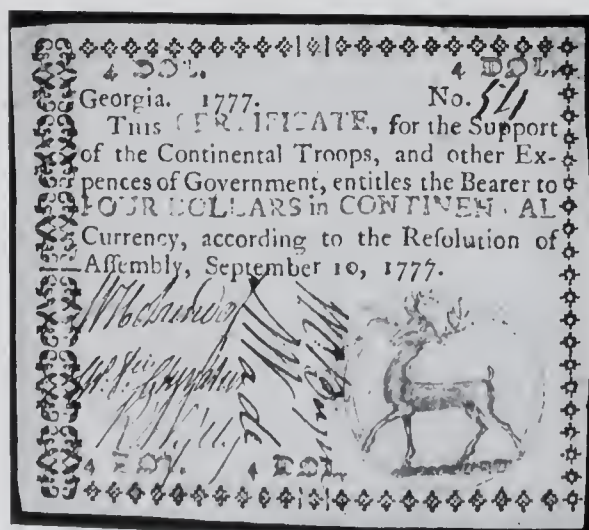 4 DOL. 4 DOL.
Georgia. 1777. No.
This CERTIFICATE, for the Support
of the Continental Troops, and other Ex-
pences of Government, entitles the Bearer to
FOUR DOLLARS in CONTINENTAL
Currency, according to the Resolution of
Assembly, September 10, 1777.
Wade
4 DOL. 4 DOL.